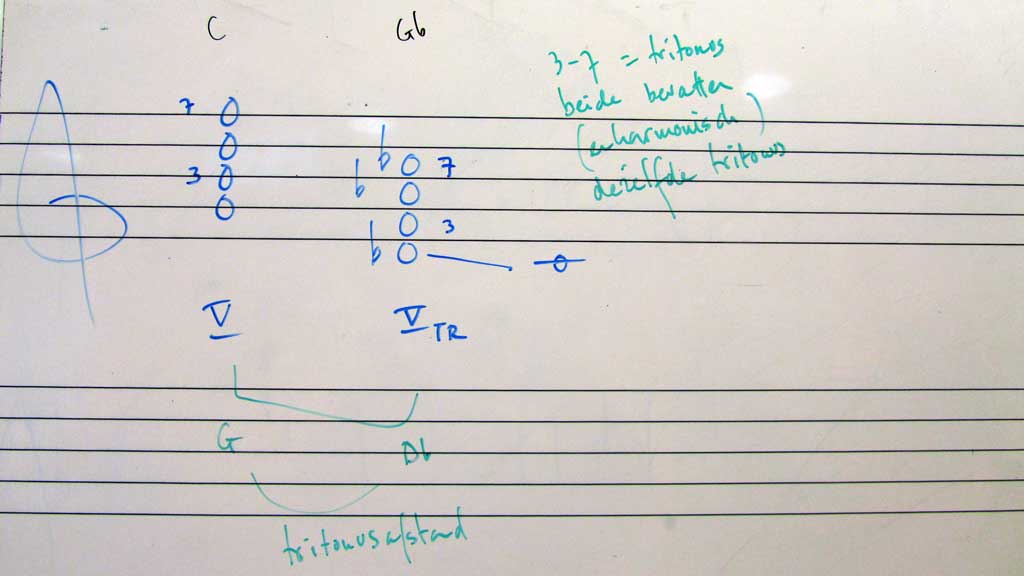 C
Gb
3-7 = tritonus
beide bevatten
(enharmonisch)
dezelfde tritonus
7
3
b
b
7
b
3
b
V
V TR
G
Db
tritonusafstand